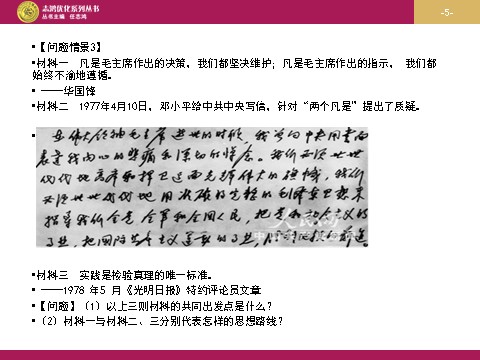 志鸿优化系列丛书
丛书主编 任志鸿
-5-
【问题情景3】
材料一 凡是毛主席作出的决策，我们都坚决维护；凡是毛主席作出的指示， 我们都
始终不渝地遵循。
——华国锋
材料二 1977年4月10日，邓小平给中共中央写信，针对“两个凡是”提出了质疑。
我们必须世世
代代地
用准确的完整的毛泽东思想来
指导我们全党、全军和全国人民，把
人民网
材料三 实践是检验真理的唯一标准。
——1978 年5 月《光明日报》特约评论员文章
【问题】（1）以上三则材料的共同出发点是什么？
（2）材料一与材料二、三分别代表怎样的思想路线？